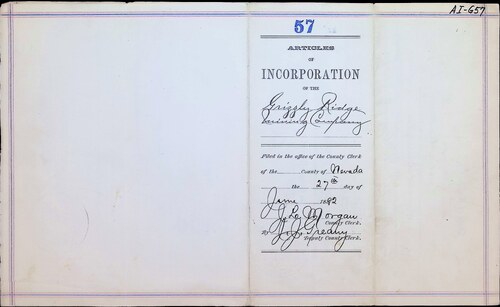 AI-657
57
ARTICLES
OF
INCORPORATION
OF THE
Grizzly Ridge
Mining Company
Filed in the office of the County Clerk
of the County of Nevada
the 27th day of
June 1882
J. L. Morgan
County Clerk.
By
Deputy County Clerk.